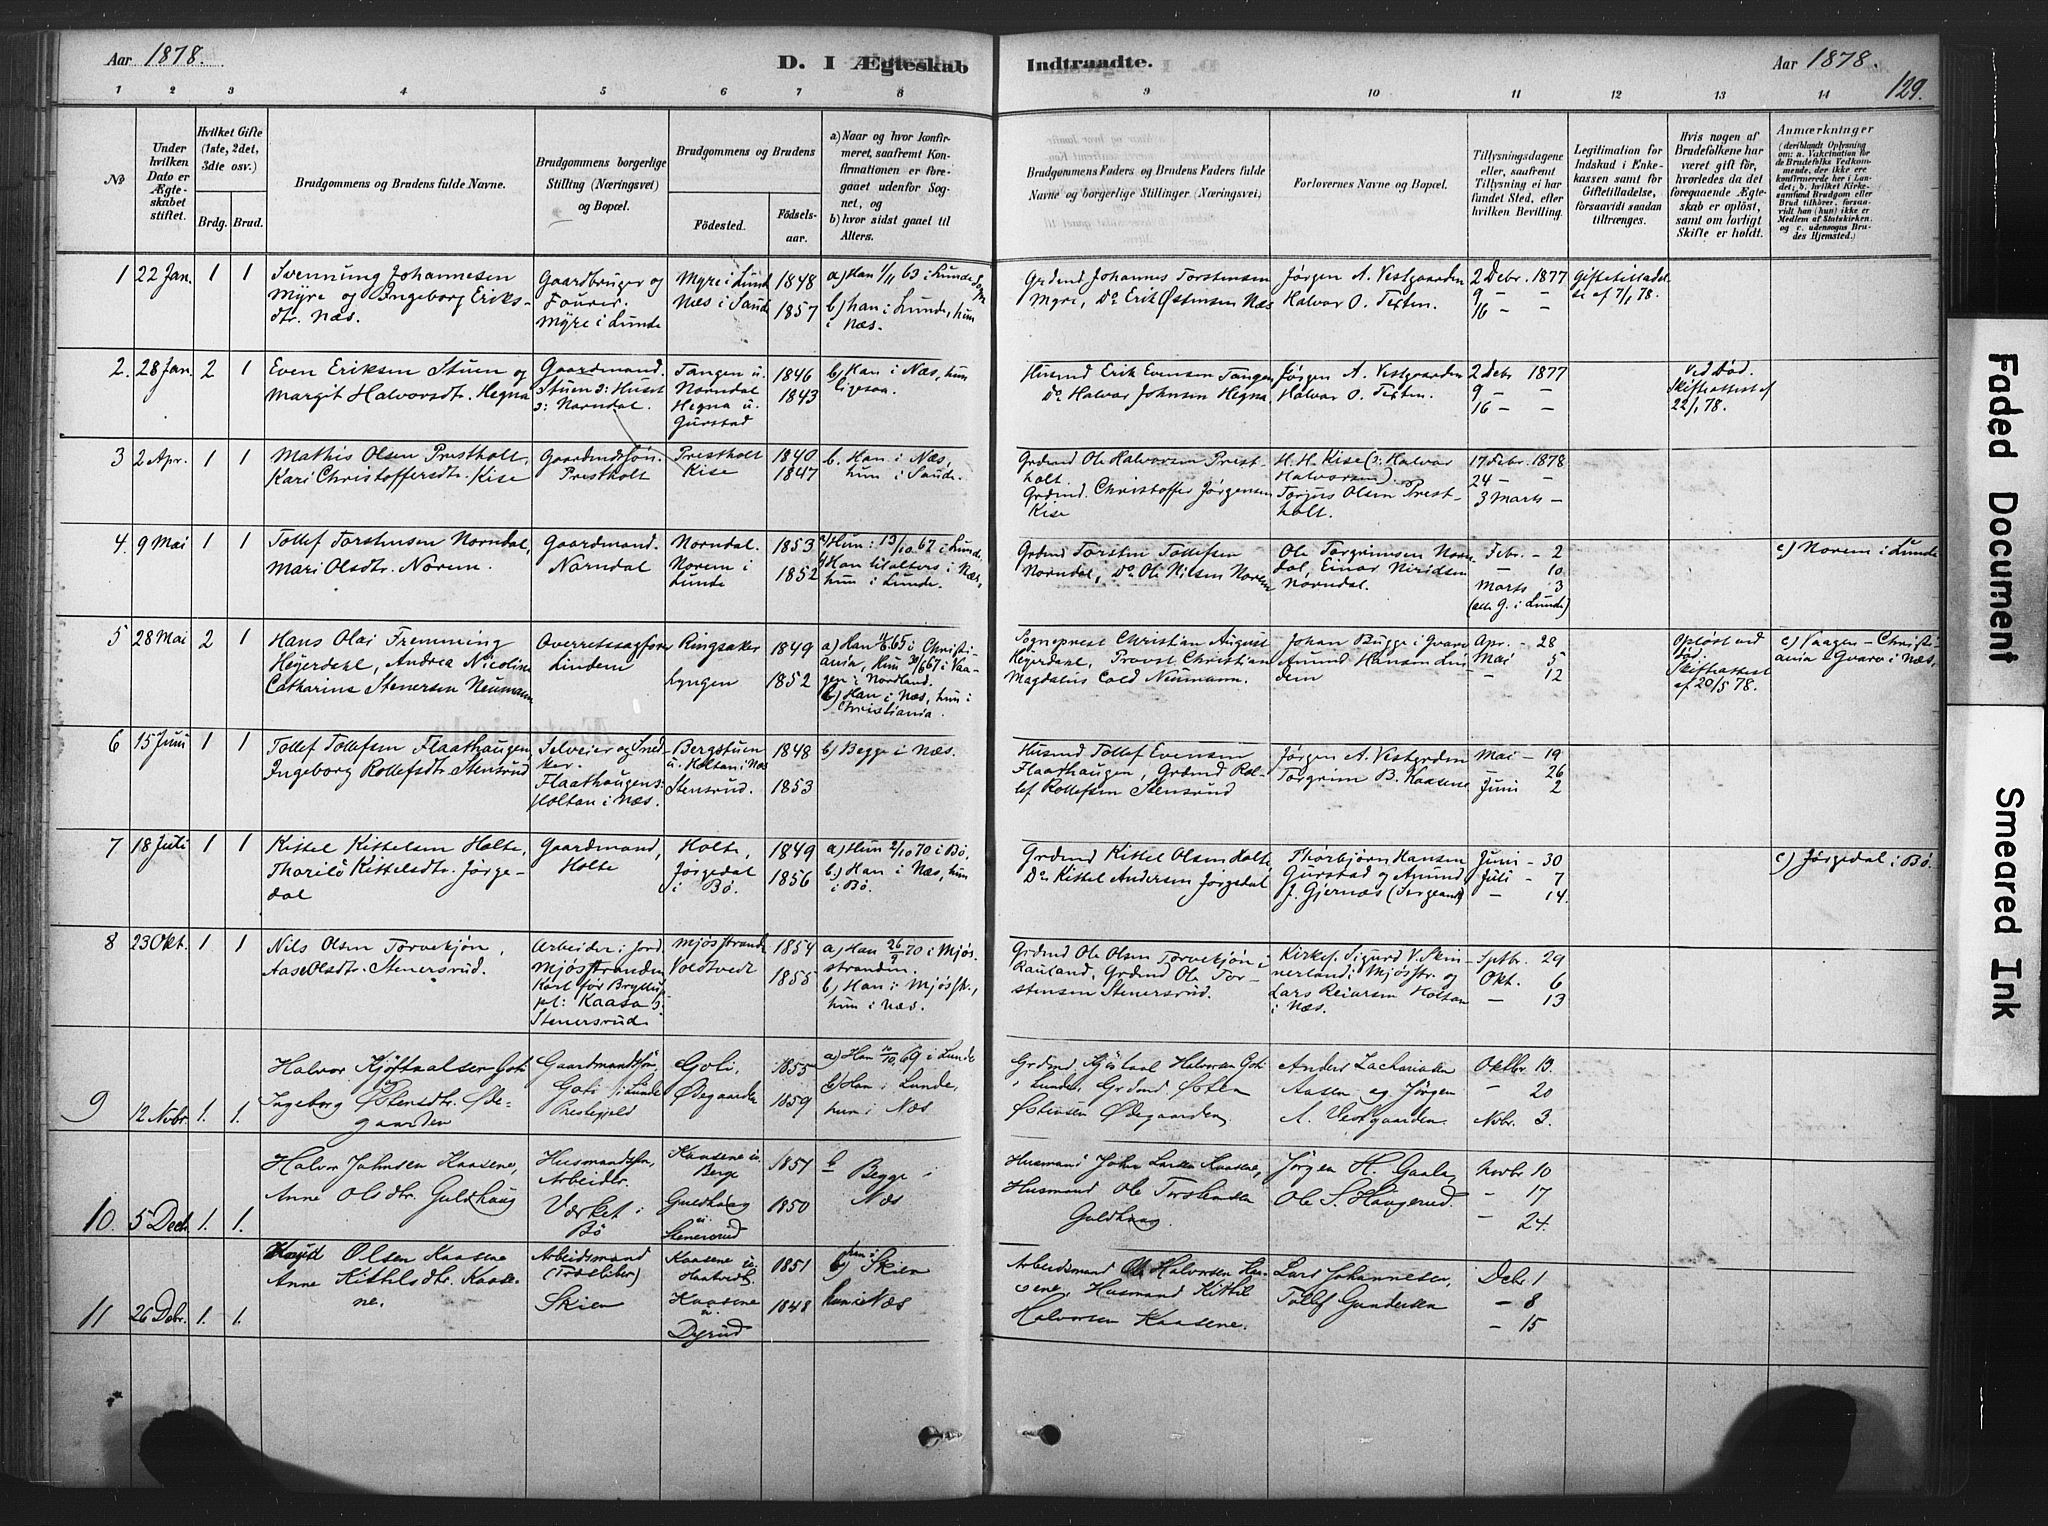 Aar 1878.
D. I Ægteskab
Indtraadte.
Aar 1878.
129.
1 2 3 4 5 6 7 8 9 10 11 12 13 14
No
Under hvilken Dato er Ægteskabet stiftet.
Hvilket Gifte (1ste, 2det, 3die osv.)
Brdg. Brud.
Brudgommens og Brudens fulde Navne.
Brudgommens borgerlige Stilling (Næringsvei) og Bopæl.
Brudgommens og Brudens
Fødested.
Fødselsaar.
a) Naar og hvor konfirmeret, saafremt Konfirmationen er foregaaet udenfor Sognet, og
b) hvor sidst gaaet til Alters.
Brudgommens Faders og Brudens Faders fulde Navne og borgerlige Stillinger (Næringsvei)
Forlovernes Navne og Bopæl.
Tillysningsdagene eller, saafremt Tillysning ei har fundet Sted, efter hvilken Bevilling.
Legitimation for Indskud i Enkekassen samt for Giftetilladelse, forsaavidt saadan tiltrænges.
Hvis nogen af Brudefolkene har været gift før, hvorledes da det foregaaende Ægteskab er opløst, samt om lovligt Skifte er holdt.
Anmærkninger
(deriblandt Oplysning om: a. Vakcination for de Brudefolks Vedkommende, der ikke ere konfirmerede her i Landet; b. hvilket Kirkesamfund Brudgom eller Brud tilhører, forsaavidt han (hun) ikke er Medlem af Statskirken, og c. udensogns Brudes Hjemsted.)
1 22 Jan. 1 1
Svennung Johannesen
Myre og Ingeborg Eriks-
dtr. Næs.
Gaardbruger og
Fourer.
Myre i Lunde
Myre i Lunde
Næs i Saude
1848
1857
a) Han 1/11 63 i Lunde
b) han i Lunde, hun
i Næs.
Grdmd Johannes Torstensen
Myre, Do Erik Østensen Næs
Jørgen A. Vestgaarden
Halvor O. Texten.
2 Debr. 1877
9 — —
16 — —
Giftetilladel-
se af 7/1 78.
2. 28 Jan. 2 1
Even Eriksen Stuen og
Margit Halvorsdtr. Hegna
Gaardmand.
Stuen i Huset
i Norndal.
Tangen u.
Norndal
Hegna u.
Gurstad
1846
1843
b) Han i Næs, hun
ligesaa.
Husmd Erik Evensen Tangen
Do Halvor Johnsen Hegna
Jørgen A. Vestgaarden
Halvor O. Texten.
2 Debr 1877
9 — —
16 — —
Ved Død.
Skifteattest af
22/1 78.
3 2 Apr. 1 1
Mathis Olsen Prestholt,
Kari Christoffersdtr. Kise
Gaardmdssøn
Prestholt
Prestholt
Kise
1840
1847
b. Han i Næs,
hun i Saude.
Grdmd Ole Halvorsen Prest-
holt.
Grdmd. Christoffer Jørgensen
Kise
H. H. Kise (o: Halvor
Halvorsen).
Torjus Olsen Prest-
holt.
17 Febr. 1878
24 — —
3 Marts —
4. 9 Mai 1 1
Tollef Torstensen Norndal,
Mari Olsdtr. Norem.
Gaardmand.
Norndal
Norndal.
Norem i
Lunde
1853
1852
a) Hun: 13/10 67 i Lunde.
b) Han til alters i Næs,
hun i Lunde.
Grdmd Torsten Tollefsen
Norndal, Do Ole Nilsen Norem
Ole Torgrimsen Norn-
dal, Einar Neridsen
Norndal.
Febr. — 2
— 10
Marts 3
(alle G. i Lunde)
c) Norem i Lunde
5 28 Mai 2 1
Hans Olai Fremming
Heyerdahl, Andrea Nicoline
Catharina Stenersen Neumann
Overretssagfører
Lindem
Ringsaker
Lyngen
1849
1852
a) Han 65 i Christi-
ania, Hun 67 i Vaa-
gen i Nordland.
b) Han i Næs, hun i
Christiania.
Sogneprest Christian August
Heyerdahl, Provst Christian
Magdalus Cold Neumann.
Johan Bugge i Gvarv
Amund Hansen Lin-
dem
Apr. — 28
Mai 5
— 12
Opløst ved
død.
Skifteattest
af 20/5 78.
c) Vaagen — Christi-
ania & Gvarv i Næs,
6 15 Juni 1 1
Tollef Tollefsen Flaathaugen
Ingeborg Rollefsdtr. Stensrud
Selveier og Sned-
ker.
Flaathaugen i
Holtan i Næs.
Bergstuen
u. Holtan i Næs
Stensrud.
1848
1853
b) Begge i Næs.
Husmd Tollef Evensen
Flaathaugen, Grdmd Rol-
lef Rollefsen Stensrud
Jørgen A. Vestgrden
Torgrim B. Kaasene
Mai — 19
— 26
Juni 2
7 18 Juli 1 1
Kittel Kittelsen Holte,
Thorild Kittelsdtr. Jørge-
dal
Gaardmand,
Holte
Holte,
Jørgedal
i Bø.
1849
1856
a) Hun 2/10 70 i Bø.
b) Han i Næs, hun
i Bø.
Grdmd Kittel Olsen Holte,
Do Kittel Andersen Jørgedal
Thorbjørn Hansen
Gurstad og Amund
J. Gjernæs (Sergeant)
Juni — 30
Juli — 7
— 14.
c) Jørgedal i Bø.
8 23 Okt. 1 1
Nils Olsen Torvekjøn,
Aase Olsdtr. Stenersrud.
Arbeider i Jord.
Mjøsstranden
Kort før Bryllup
pl: Kaasa i
Stenersrud
Mjøsstrande
Voldtvedt
1854
1855
a) Han 26/9 70 i Mjøs-
stranden.
b) Han i Mjøsstr.,
hun i Næs.
Grdmd Ole Olsen Torvekjøn i
Rauland, Grdmd Ole Tor-
stensen Stenersrud.
Kirkes. Sigurd V. Skin-
nerland i Mjøsstr. og
Lars Reiersen Holtan
i Næs.
Septbr. 29
Okt. 6
— 13
9 12 Novbr. 1. 1.
Halvor Kjøstaalsen Goti
Ingeborg Østensdtr. Øde-
gaarden
Gaardmandssøn,
Goti i Lunde
Prestegjeld
Goti,
Ødegaarden
1855
1859
a) Han 69 i Lunde
b) Han i Lunde,
hun i Næs
Grdmd. Kjøstaal Halvorsen Goti
i Lunde, Grdmd Østen
Østensen Ødegaarden
Anders Zachariasen
Aasen og Jørgen
A. Vestgaarden
Oktbr 13.
" 20
Nvbr. 3.
10. 5 Decb. 1. 1.
Halvor Johnsen Kaasene,
Anne Olsdtr. Guldhaug
Husmandssøn,
Arbeider.
Værket i
Bø
Kaasene u.
Berge
Guldhaug
u.
Stenersrud
1851
1850
b
Begge i
Næs
Husmand John Larsen Kaasene,
Husmand Ole Torstensen
Guldhaug.
Jørgen H. Gaala,
Ole S. Haugerud.
Novbr 10
" 17
— 24.
11 26 Debr. 1. 1.
Knud Olsen Kaasene
Anne Kittilsdtr. Kaase-
ne.
Arbeidsmand
(Træsliber)
Skien
Kaasene u.
Haatvedt
Kaasene
u
Dyrud
1851
1848
b) han i Skien
hun i Næs
Arbeidsmand Ole Halvorsen Ka-
sene, Husmand Kittil
Halvorsen Kaasene.
Lars Johannesen,
Tollef Gundersen
Debr 1
— 8
— 15
Faded Document
Smeared Ink